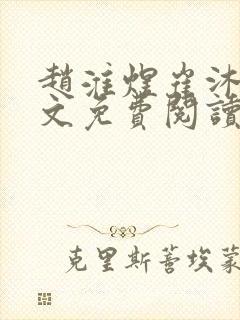 趙淮煌崔沐
文免費閱讀
克里斯蒂埃蒙